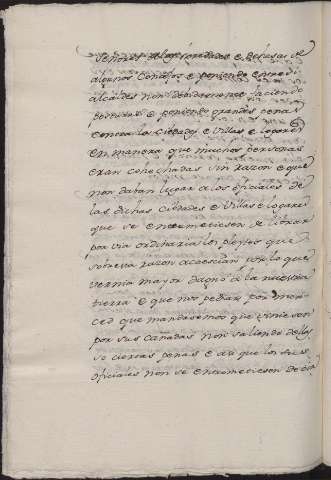 señores de los ganados e dehesas de
algunos Conçejos e poniendo entre si
alcaldes non debidamente façiendo
posturas e poniendo grandes penas
contra los Ciudads e Villas e logares
en manera que muchos personas
eran cohechadas sin razon e que
non daban lugar a los ofiçiales de
las dichas Ciudades e Villas e logares
que se entremetiesen de librar
por via ordinaria los pleytos que
sobre esta razon acaesçian por lo que
vernia mayor dagno a la nuestra
tierra e que nos pedian por mer-
ced que mandasemos que viniesen
por sus cañadas non saliendo dellas
so ciertas penas e asi que los tales
ofiçiales non se entremetiesen de